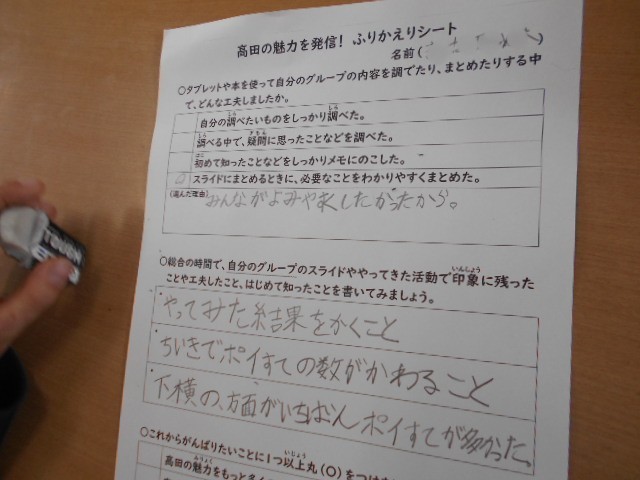 高田の魅力を発信！ふりかえりシート
名前（
○タブレットや本を使って自分のグループの内容を調でたり、まとめたりする中
で、どんな工夫しましたか。
自分の調べたいものをしっかり調べた。
調べる中で、疑問に思ったことなどを調べた。
初めて知ったことなどをしっかりメモにのこした。
○ スライドにまとめるときに、必要なことをわかりやすくまとめた。
(選んだ理由)
みんながよみやすくしたかったから。
○総合の時間で、自分のグループのスライドややってきた活動で印象に残った
ことや工夫したこと、はじめて知ったことを書いてみましょう。
・やってみた結果をかくこと
・ちいきで、ポイすての数がかわること
・下横の、方面がいちばんポイすてが多かった、
○これからがんばりたいことに1つ以上丸（○）をつけ
高田の魅力をもっと多く